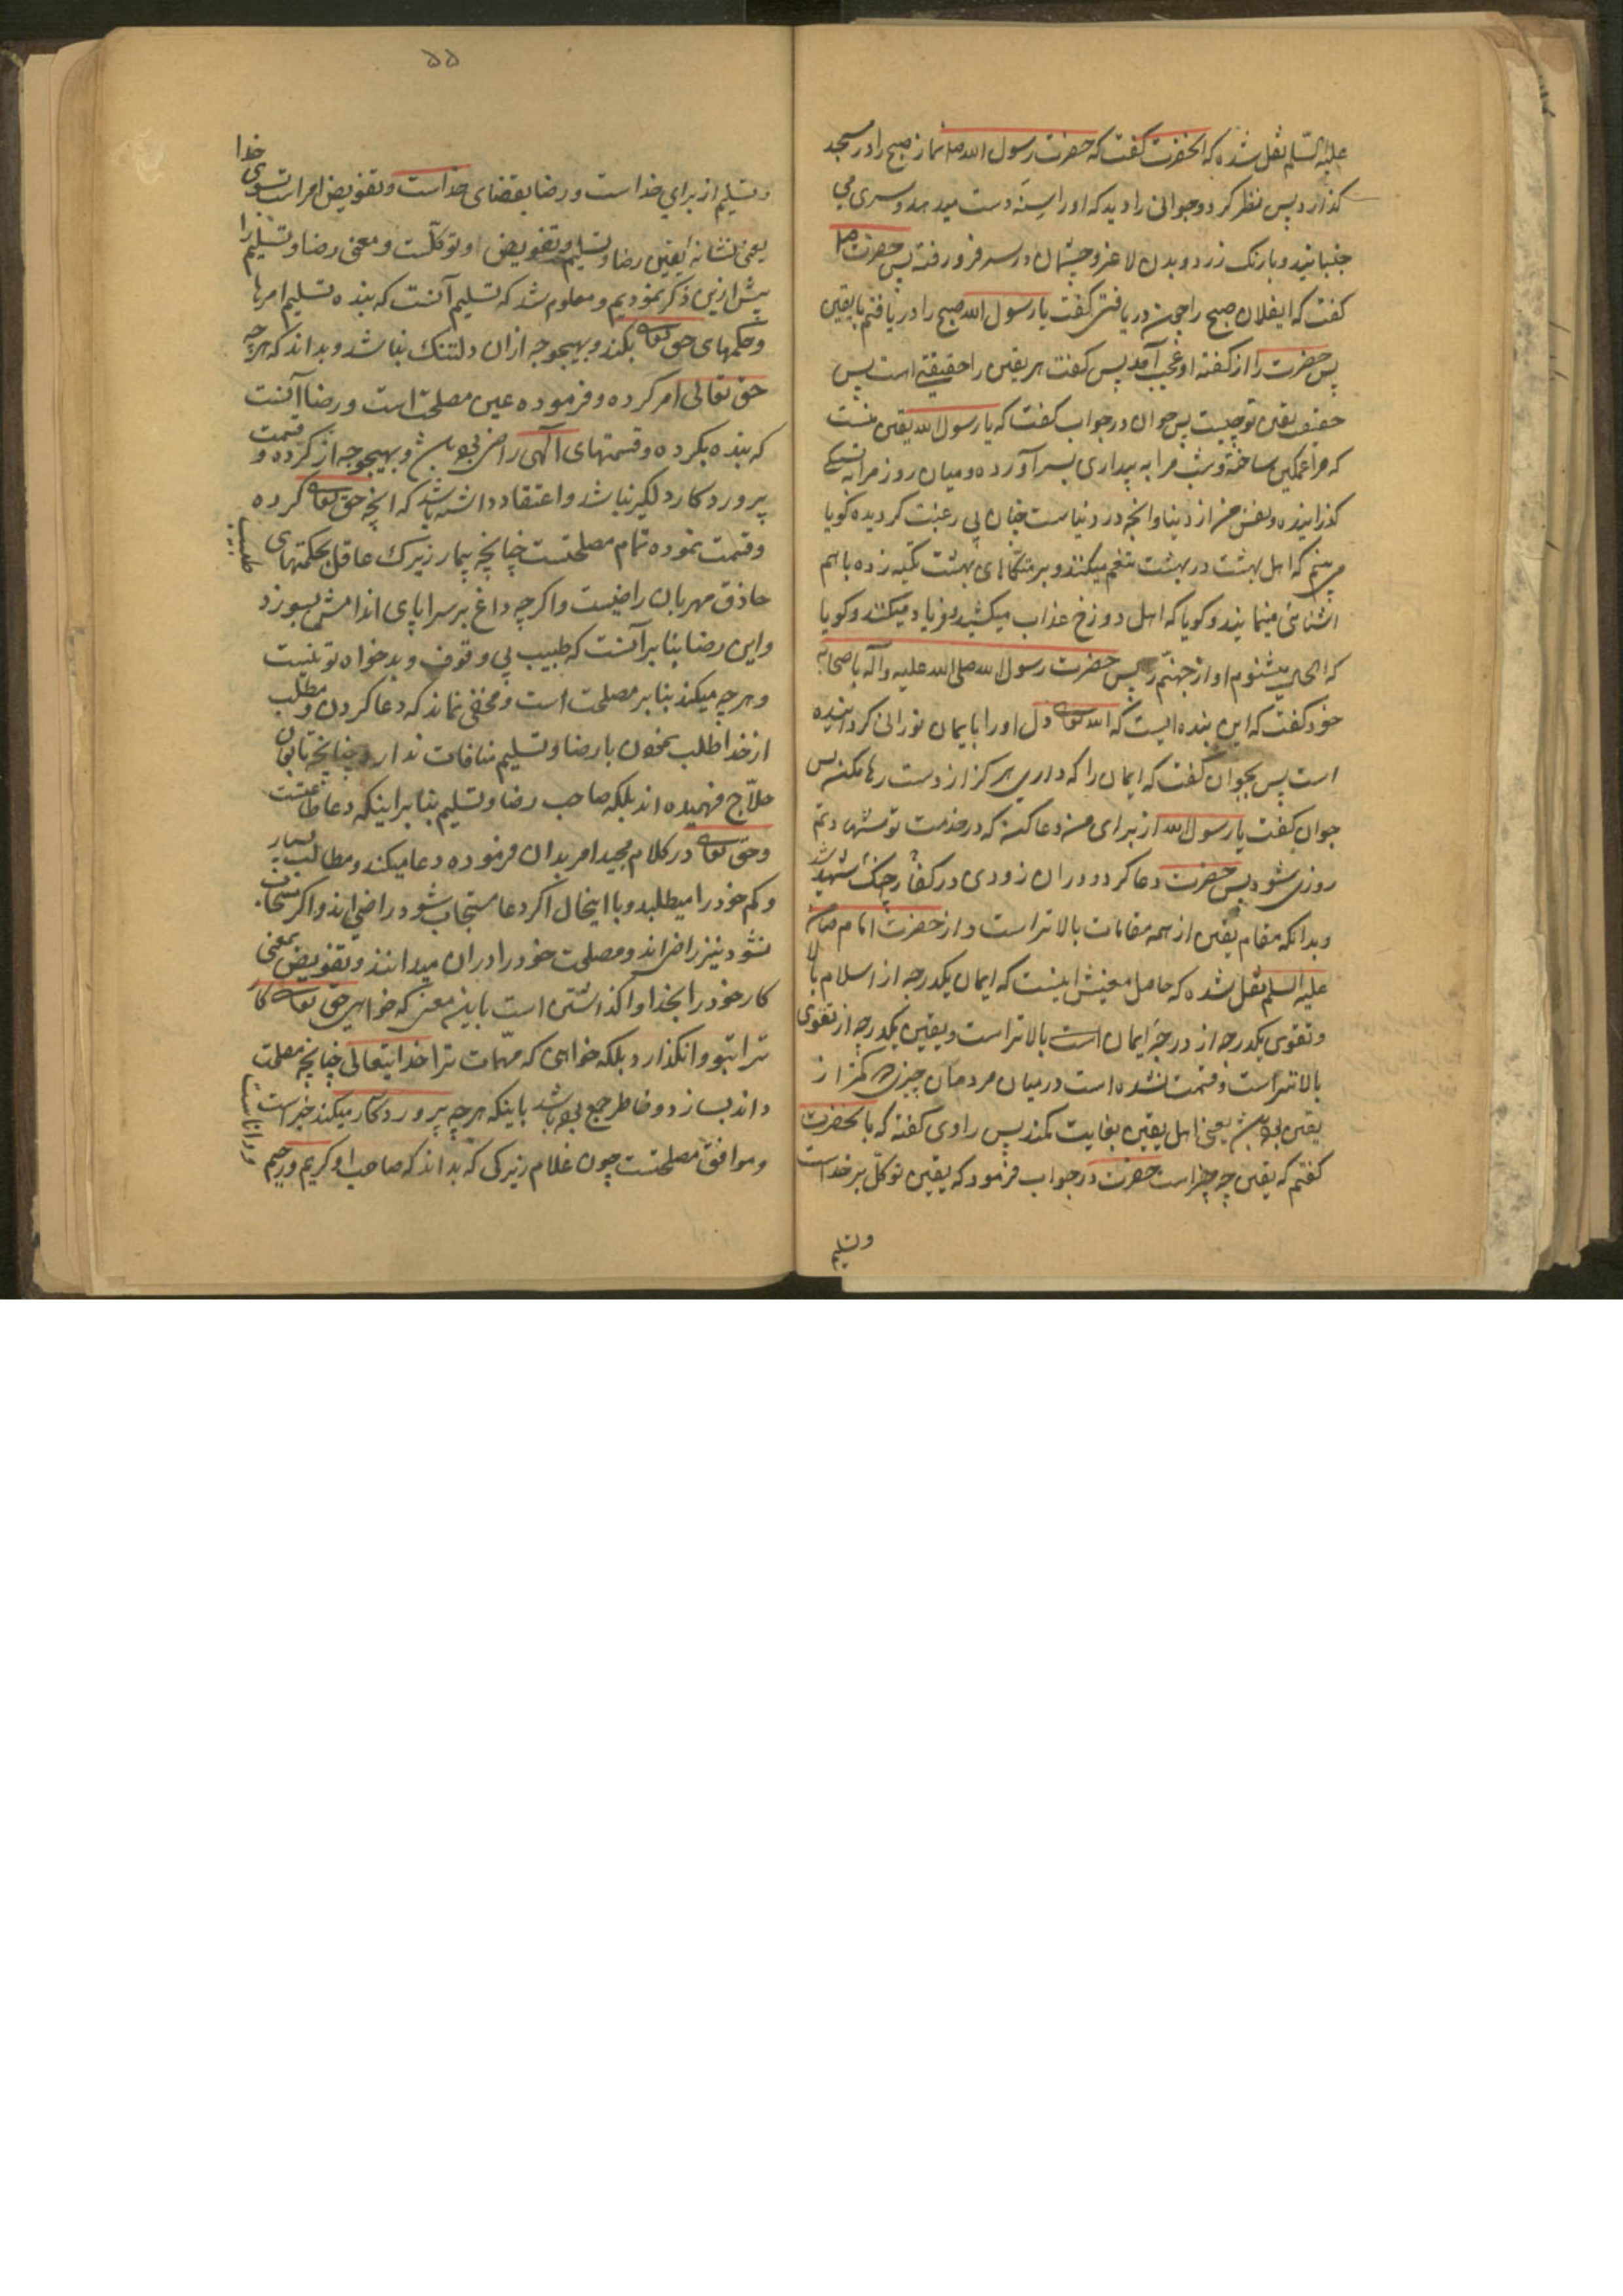 علیه السّلم نقل شده که آنحضرت گفت که حضرت رسول الله صلا نماز صبح را در مسجد
گذارد پس نظر کرد و جوانی را دید که او را سِنَه دست میدهد و سری می
جنبانید و با رنک زرد و بدن لاغر و چشمان در سر فرو رفته پس حضرت صلا
گفت که ایفلان صبح را چون دریافتی گفت یا رسول الله صبح را دریافتم با یقین
پس حضرت را از گفته او عجب آمد پس گفت هر یقین را حقیقتی است پس
حقیقت یقین تو چیست پس جوان در جواب گفت که یا رسول الله یقین منست
که مرا غمکین ساخته و شب مرا به بیداری بسر آورده و میان روز مرا به تشنکی
کذرانیده و نفس من از دنیا و آنچه در دنیاست چنان بی رغبت کردیده کویا
می بینم که اهل بهشت در بهشت تنعم میکنند و بر متکاهای بهشت تکیه زده با هم
اشنائی مینمایند و کویا که اهل دوزخ عذاب میکشند و فریاد میکنند و کویا
که الحال میشنوم اواز جهنّم را پس حضرت رسول الله صلی الله علیه و آله باصحاب
خود گفت که این بنده ایست که الله تعالی دل او را بایمان نورانی کردانیده
است پس بجوان گفت که ایمان را که داری هرکز از دست رها مکن پس
جوان گفت یا رسول الله از برای من دعا کن که در خدمت تو شهادتم
روزی شود پس حضرت دعا کرد و در ان زودی در جنک کفار شهید شد
و بدانکه مقام یقین از همه مقامات بالاتر است و از حضرت امام رضا
علیه السلم نقل شده که حاصل معنیش اینست که ایمان یکدرجه از اسلام بالا
و تقوی یکدرجه از درجۀ ایمان است بالاتر است و یقین یکدرجه از تقوی
بالاتر است و قسمت نشده است در میان مردمان چیزی کمتر از
یقین یعنی اهل یقین بغایت کمند پس راوی گفته که بآنحضرت
کفتم که یقین چه چیز است حضرت در جواب فرمود که یقین توکّل بر خداست
و تسلیم
۵۵
و تسلیم از برای خداست و رضا بقضای خداست و تفویض امر است بسوی خدا
یعنی نشانه یقین رضا و تسلیم و تفویض او توکّلست و معنی رضا و تسلیم را
پیش ازین ذکر نمودیم و معلوم شد که تسلیم آنست که بنده تسلیم امرها
و حکمهای حق تعالی بکند و بهیچوجه ازان دلتنک نباشد و بداند که هرچه
حق تعالی امر کرده و فرموده عین مصلحت است و رضا آنست
که بنده بکرده و قسمتهای آلهی راضی و بهیچوجه از کرده و قسمت
پروردکار دلکیر نباشد و اعتقاد داشته باشد که آنچه حق تعالی کرده
و قسمت نموده تمام مصلحتست چنانچه بیمار زیرک عاقل بحکمتهای طبیب
حاذق مهربان راضیست و اکرچه داغ بر سراپای اندامش بسوزد
و این رضا بنا بر آنست که طبیب بی وقوف و بدخواه تو نیست
و هرچه میکند بنا بر مصلحت است و مخفی نماند که دعا کردن و مطلب
از خدا طلب نمودن با رضا و تسلیم منافات ندارد چنانچه تابعان
حلاّج فهمیده اند بلکه صاحب رضا و تسلیم بنا بر اینکه دعا طاعتست
و حق تعالی در کلام مجید امر بدان فرموده دعا میکند و مطالب بسیار
و کم خود را میطلبد و با اینحال اکر دعا مستجاب شود راضی اند و اکر مستجاب
نشود نیز راضی اند و مصلحت خود را در ان میدانند و تفویض بمعنی
کار خود را بخدا واکذاشتن است باین معنی که خواهی حق تعالی کار
ترا بتو وانکذارد بلکه خواهی که مهمّات ترا خدایتعالی چنانچه مصلحت
داند بسازد و خاطر جمع باشد باینکه هرچه پروردکار میکند خیر است
و موافق مصلحتست چون غلام زیرکی که بداند که صاحب او کریم و رحیم و داناست